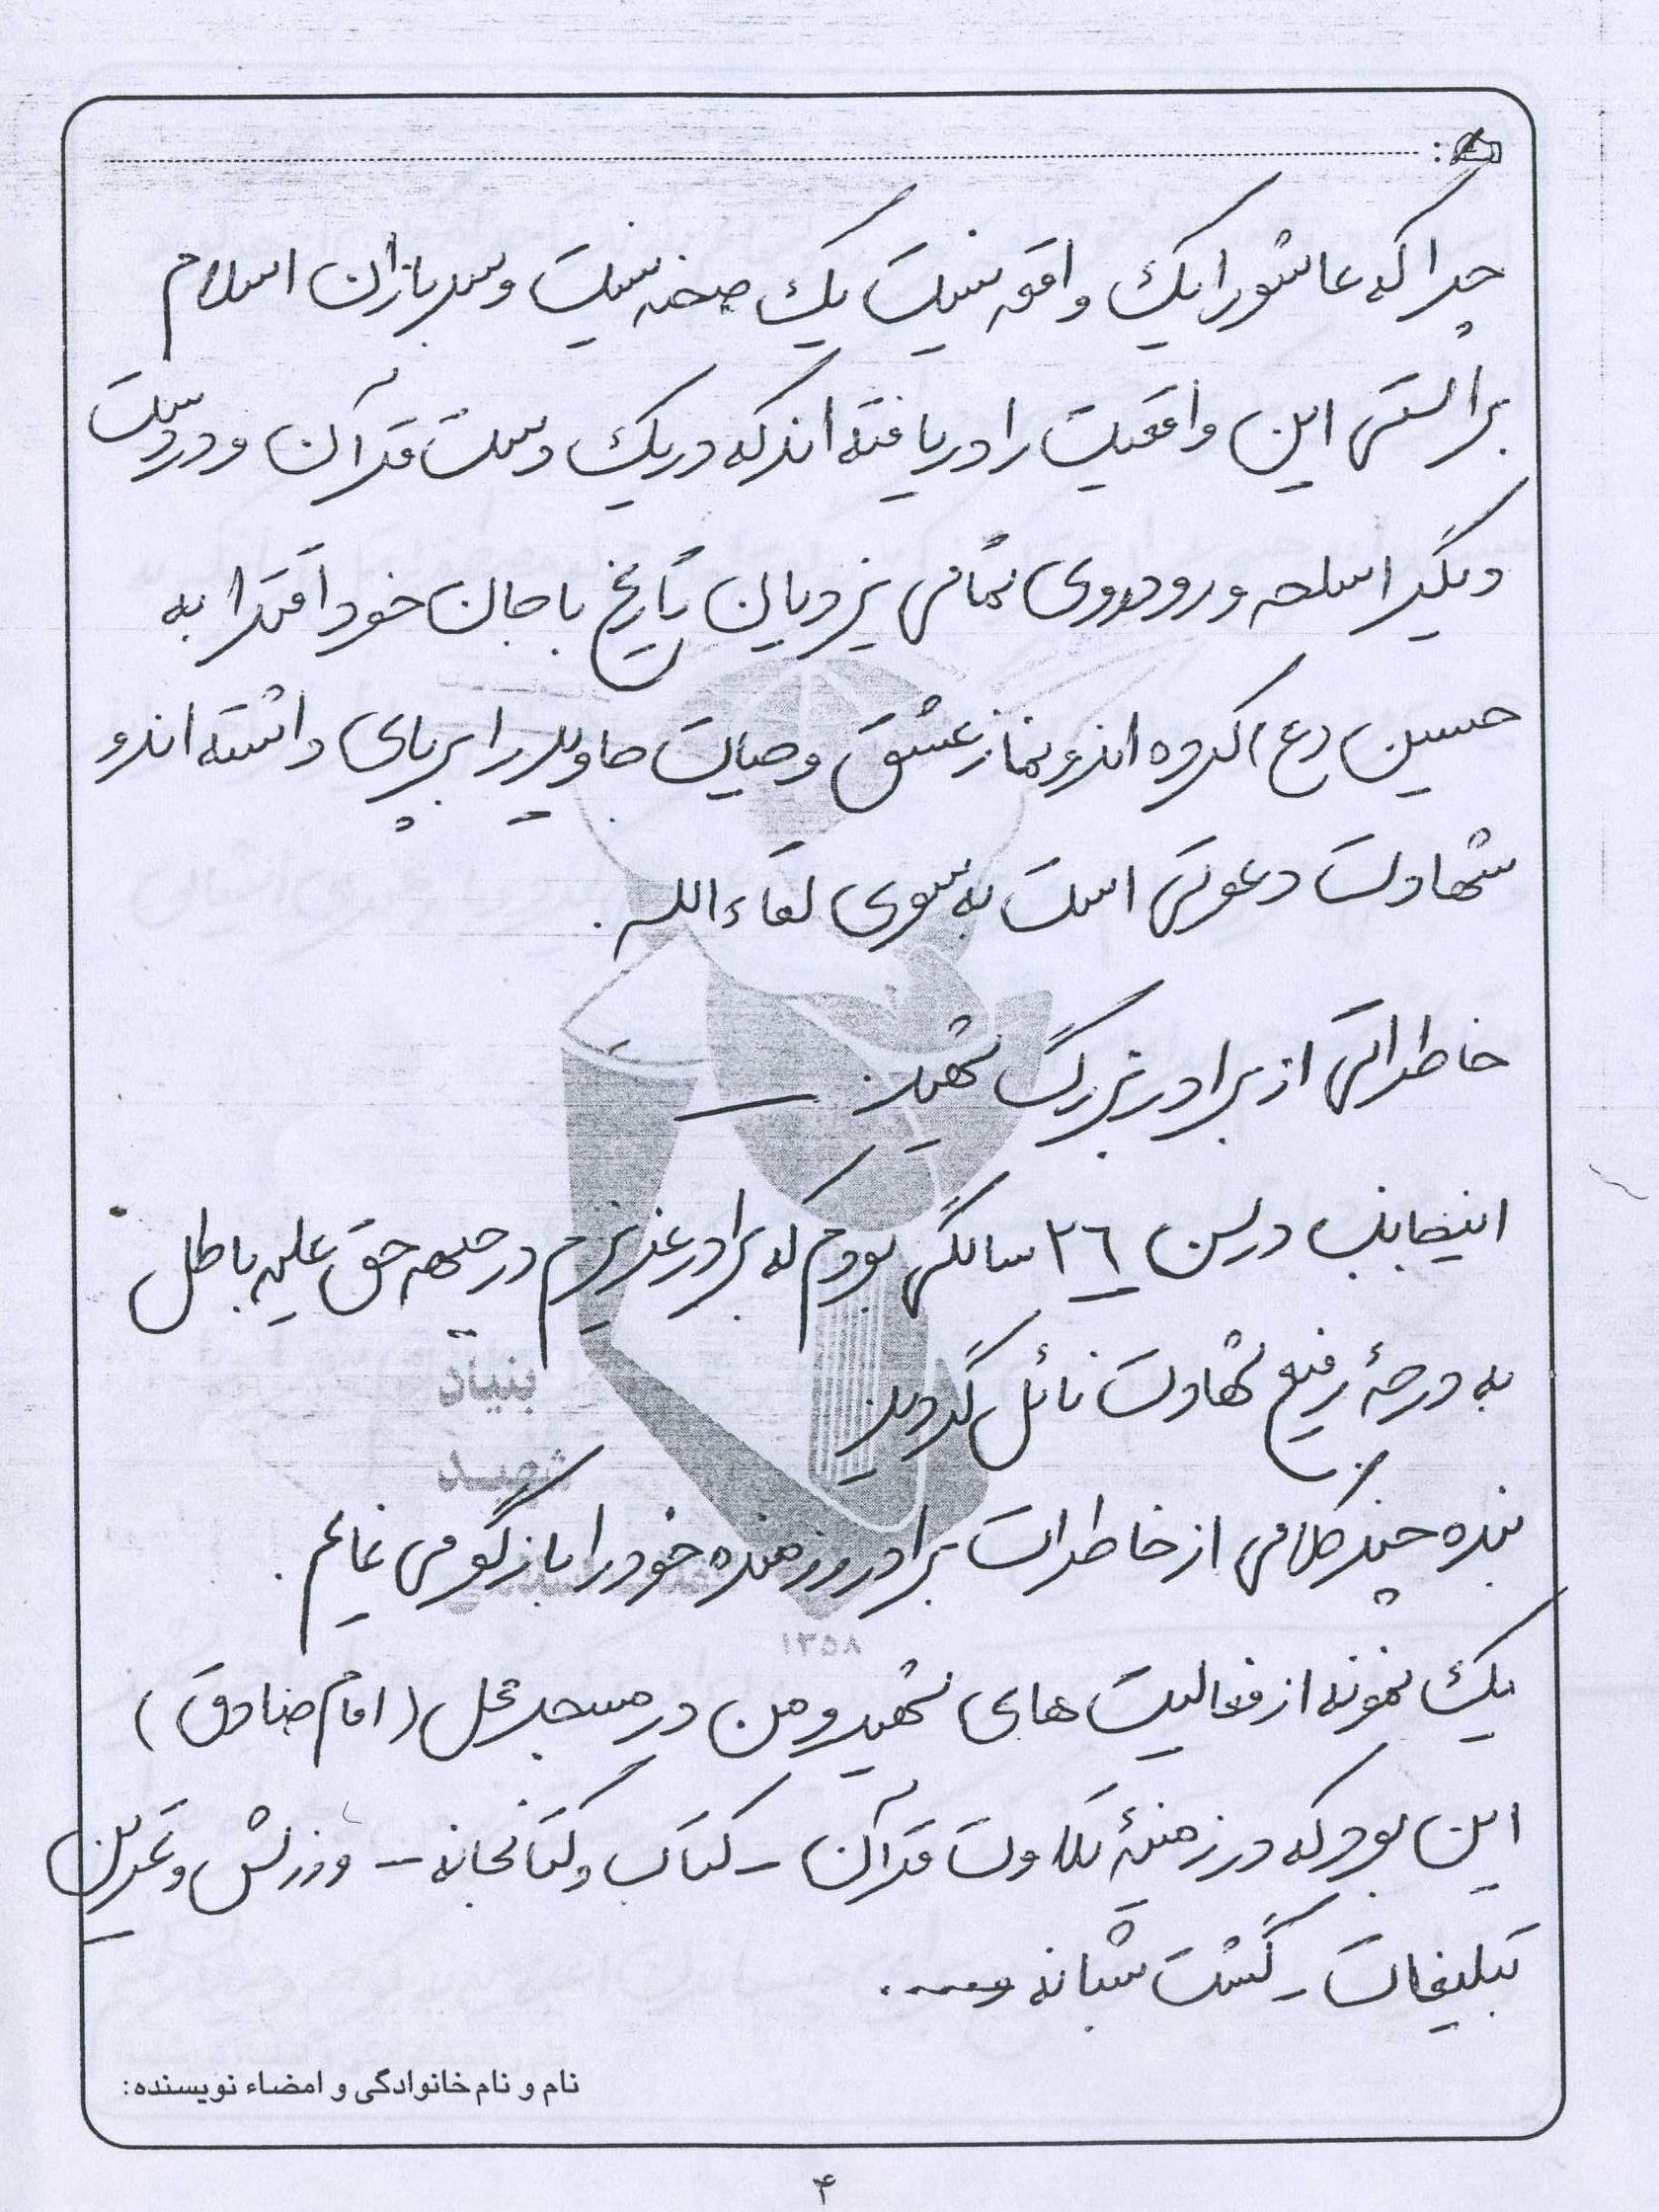 چرا که عاشورا یک واقعه نیست یک صحنه نیست و سربازان اسلام
براستی این واقعیت را دریافته اند که در یک دست قرآن و در دست
دیگر اسلحه و رودرروی تمامی یزیدیان تاریخ با جان خود اقتدا به
حسین (ع) کرده اند و نماز عشق و حیات جاوید را برپای داشته اند و
شهادت دعوتی است به سوی لقاءالله .
خاطراتی از برادر بزرگ شهید :
اینجانب در سن ۲۶ سالگی بودم که برادر عزیزم در جبهه حق علیه باطل
به درجهٔ رفیع شهادت نائل گردید
بنده چند کلامی از خاطرات برادر رزمنده خود را بازگو می نمایم .
یک نمونه از فعالیت های شهید و من در مسجد محل ( امام صادق )
این بود که در زمینهٔ تلاوت قرآن - کتاب و کتابخانه - ورزش و تمرین
تبلیغات - گشت شبانه و.....
بنیاد
شهید
۱۳۵۸
نام و نام خانوادگی و امضاء نویسنده:
۴